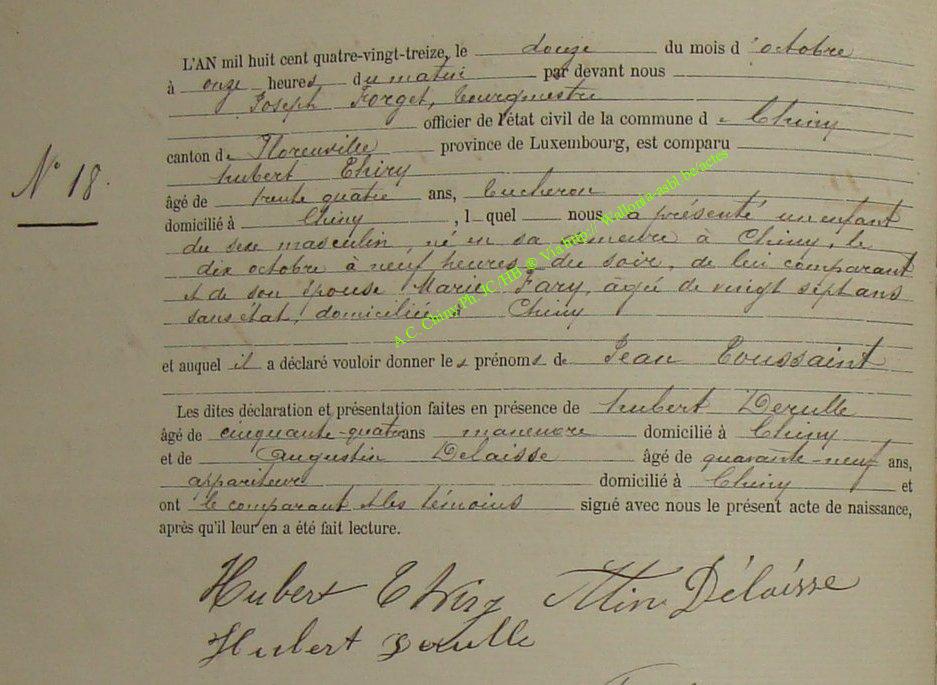 L'AN mil huit cent quatre-vingt-treize, le douze du mois d'octobre
à onze heures du matin par devant nous
Joseph Forget, bourgmestre
officier de l'état civil de la commune de Chiny
canton de Florenville province de Luxembourg, est comparu
N° 18.
hubert Thiry
âgé de trente quatre ans, bucheron
domicilié à Chiny, lequel nous a présenté un enfant
du sexe masculin, né en sa demeure à Chiny, le
dix octobre à neuf heures du soir, de lui comparant
et de son épouse Marie Fary, âgée de vingt sept ans
sans état, domiciliée à Chiny
et auquel il a déclaré vouloir donner les prénoms de Jean Toussaint
Les dites déclaration et présentation faites en présence de hubert Derulle
âgé de cinquante-quatre ans manœuvre domicilié à Chiny
et de Augustin Delaisse âgé de quarante-neuf ans,
appariteur domicilié à Chiny et
ont le comparant et les témoins signé avec nous le présent acte de naissance,
après qu'il leur en a été fait lecture.
Hubert Thiry Délaisse
Hubert Derulle
A.C. Chiny Ph. JC/HB ® Via http:// Wallonia-asbl.be/actes